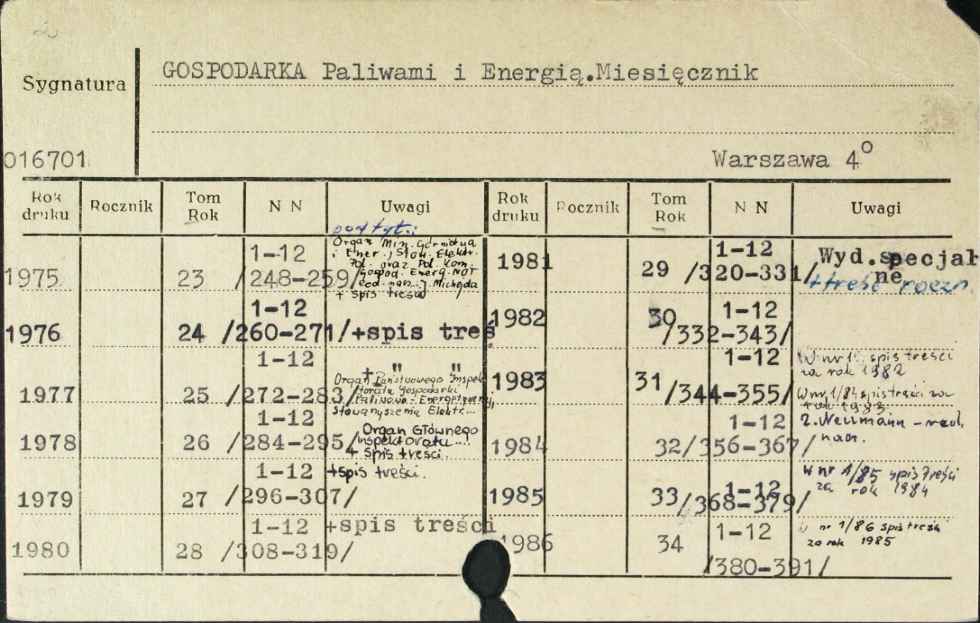 Sygnatura
GOSPODARKA Paliwami i Energią.Miesięcznik
016701
Warszawa 4°
Rok druku Rocznik Tom Rok N N Uwagi Rok druku Rocznik Tom Rok N N Uwagi
podtyt.:
1975 23 1-12 /248-259/
Organ Min. Górnictwa
i Ener., Stow. Elektr.
Pol. oraz Pol. Kom.
Gospod. Energ. NOT
red. nan. J. Michejda
+ spis treści
1976 24 1-12 /260-271/+spis treś
1977 25 1-12 /272-283/
+ " "
Organ Państwowego Inspek
toratu Gospodarki
Paliwowo-Energetycznej,
Stowarzyszenia Elektr...
1978 26 1-12 /284-295/
Organ Głównego
Inspektoratu...
+ spis treści.
1979 27 1-12 /296-307/ +spis treści.
1980 28 1-12 /308-319/ +spis treści
1981 29 1-12 /320-331/ Wyd.specjal
ne
+treść roczn.
1982 30 1-12 /332-343/
1983 31 1-12 /344-355/
W nr spis treści
za rok 1982
W nr 1/84 spis treści za
rok 1983
1984 32 1-12 /356-367/
Z. Neumann - red.
nacz.
1985 33 1-12 /368-379/
W nr 1/85 spis treści
za rok 1984
1986 34 1-12 /380-391/
W nr 1/86 spis treści
za rok 1985